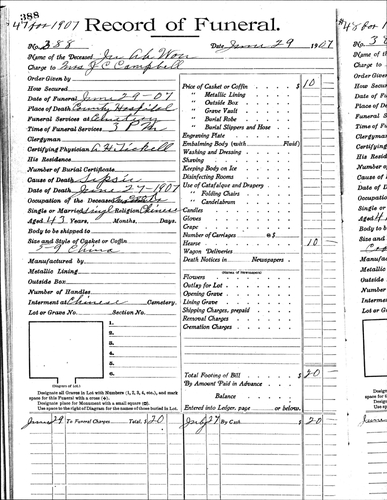 388
47 for 1907
Record of Funeral.
No. 388
Date June 29 1907
Name of the Deceased
Charge to Mrs J C Campbell
Order Given by
How Secured
Date of Funeral June 29-07
Place of Death County Hospital
Funeral Services at
Time of Funeral Services 3 PM
Clergyman
Certifying Physician
His Residence
Number of Burial Certificate
Cause of Death
Date of Death June 27-1907
Occupation of the Deceased
Single or Married Singl Religion Chinese
Aged 43 Years, Months, Days.
Body to be shipped to
Size and Style of Casket or Coffin
5-9 China
Manufactured by
Metallic Lining
Outside Box
Number of Handles
Interment at Chinese Cemetery.
Lot or Grave No. Section No.
1.
2.
3.
4.
5.
6.
(Diagram of Lot.)
Designate all Graves in Lot with Numbers (1, 2, 3, 4, etc.), and mark
space for this Funeral with a cross (+).
Designate place for Monument with a small square (□).
Use space to the right of Diagram for the names of those buried in Lot.
Price of Casket or Coffin $ 10
" Metallic Lining
" Outside Box
" Grave Vault
" Burial Robe
" Burial Slippers and Hose
Engraving Plate
Embalming Body (with Fluid)
Washing and Dressing
Shaving
Keeping Body on Ice
Disinfecting Rooms
Use of Catafalque and Drapery
" Folding Chairs
" Candelabrum
Candles
Gloves
Crape
Number of Carriages @ $
Hearse 10
Wagon Deliveries
Death Notices in Newspapers
(Names of Newspapers)
Flowers
Outlay for Lot
Opening Grave
Lining Grave
Shipping Charges, prepaid
Removal Charges
Cremation Charges
Total Footing of Bill $ 20
By Amount Paid in Advance
Balance
Entered into Ledger, page or below.
June 29 To Funeral Charges Total, $ 20
July 27 By Cash $ 20